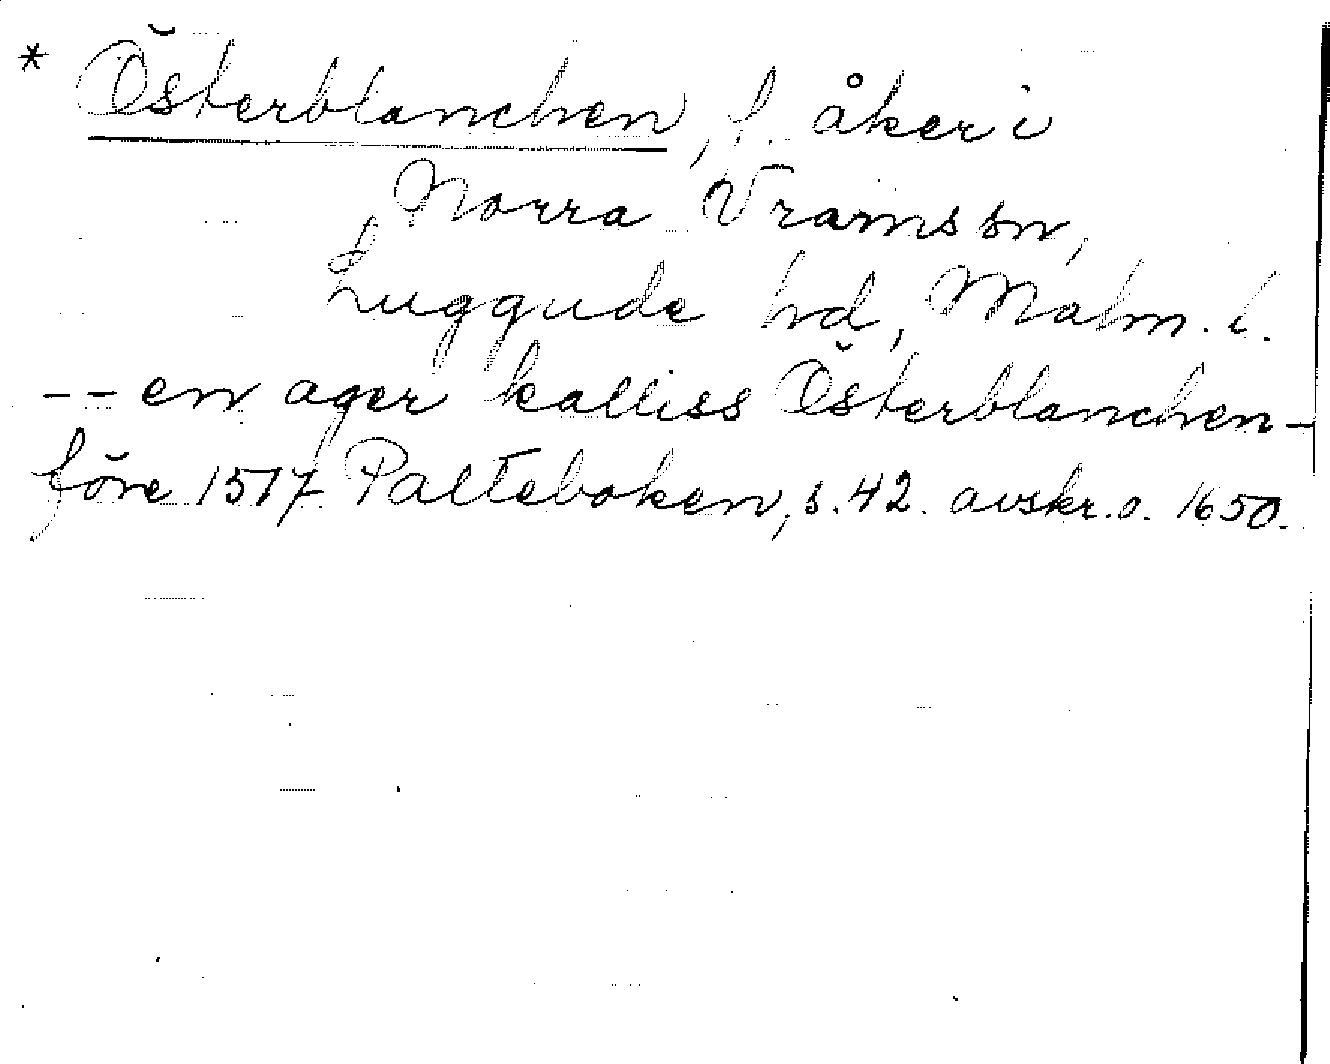 * Österblanchen, f. åker i
Norra Vrams sn,
Luggude hd, Malm. l.
-- en ager kalliss Österblanchen -
före 1517 Palteboken, s. 42. avskr. o. 1650.